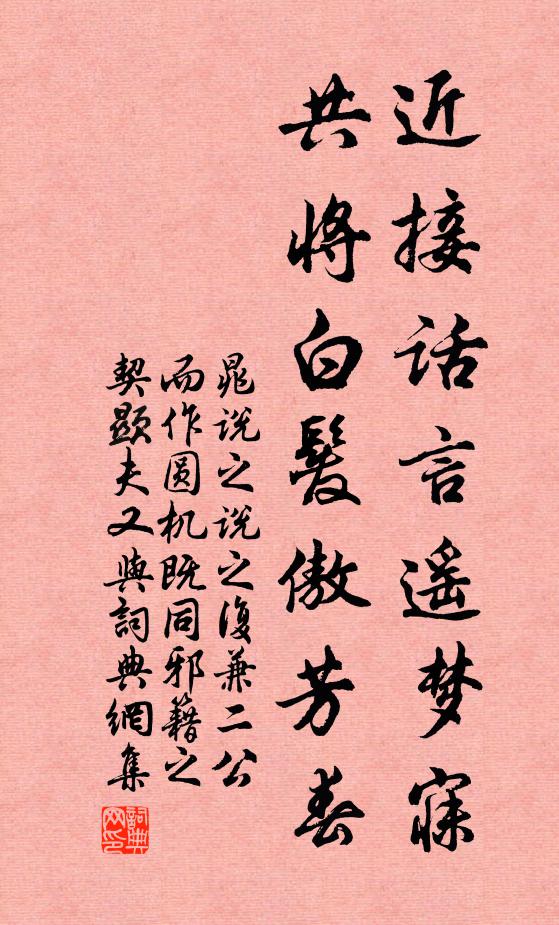 近接话言遥梦寐
共将白髮傲芳春
晁说之说之復兼二公
而作圆机既同邪籍之
契顕夫又與詞典網集
詞典网印